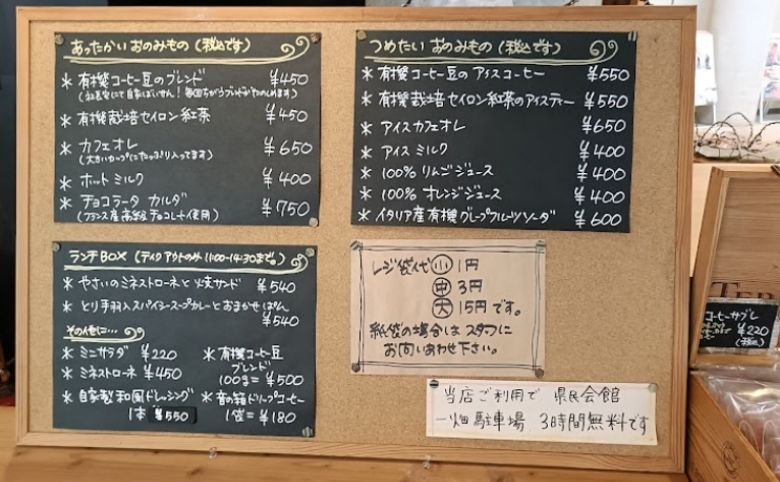 あったかい おのみもの (税込です)
* 有機コーヒー豆のブレンド ¥450
* 有機栽培セイロン紅茶 ¥450
* カフェオレ ¥650
(大きいカップにたっぷり入ってます)
* ホットミルク ¥400
* チョコラータ カルダ ¥750
(フランス産高級チョコレート使用)
つめたい おのみもの (税込です)
* 有機コーヒー豆の アイスコーヒー ¥550
* 有機栽培セイロン紅茶のアイスティー ¥550
* アイスカフェオレ ¥650
* アイス ミルク ¥400
* 100% りんごジュース ¥400
* 100% オレンジジュース ¥400
* イタリア産有機グレープフルーツソーダ ¥600
ランチBOX (テイクアウトのみ 11:00-14:30まで。)
* やさいのミネストローネと焼サンド ¥540
* とり手羽入スパイシースープカレーとおまかせぱん
¥540
その他に…
* ミニサラダ ¥220
* ミネストローネ ¥450
* 自家製和風ドレッシング
1本 ¥550
* 有機コーヒー豆
ブレンド
100g = ¥500
* 音の箱ドリップコーヒー
1袋 = ¥180
レジ袋代 小 1円
中 3円
大 15円です。
紙袋の場合は スタッフに
お問いあわせ下さい。
当店ご利用で 県民会館
一畑駐車場 3時間無料です
コーヒーサブレ
¥220
(税込)